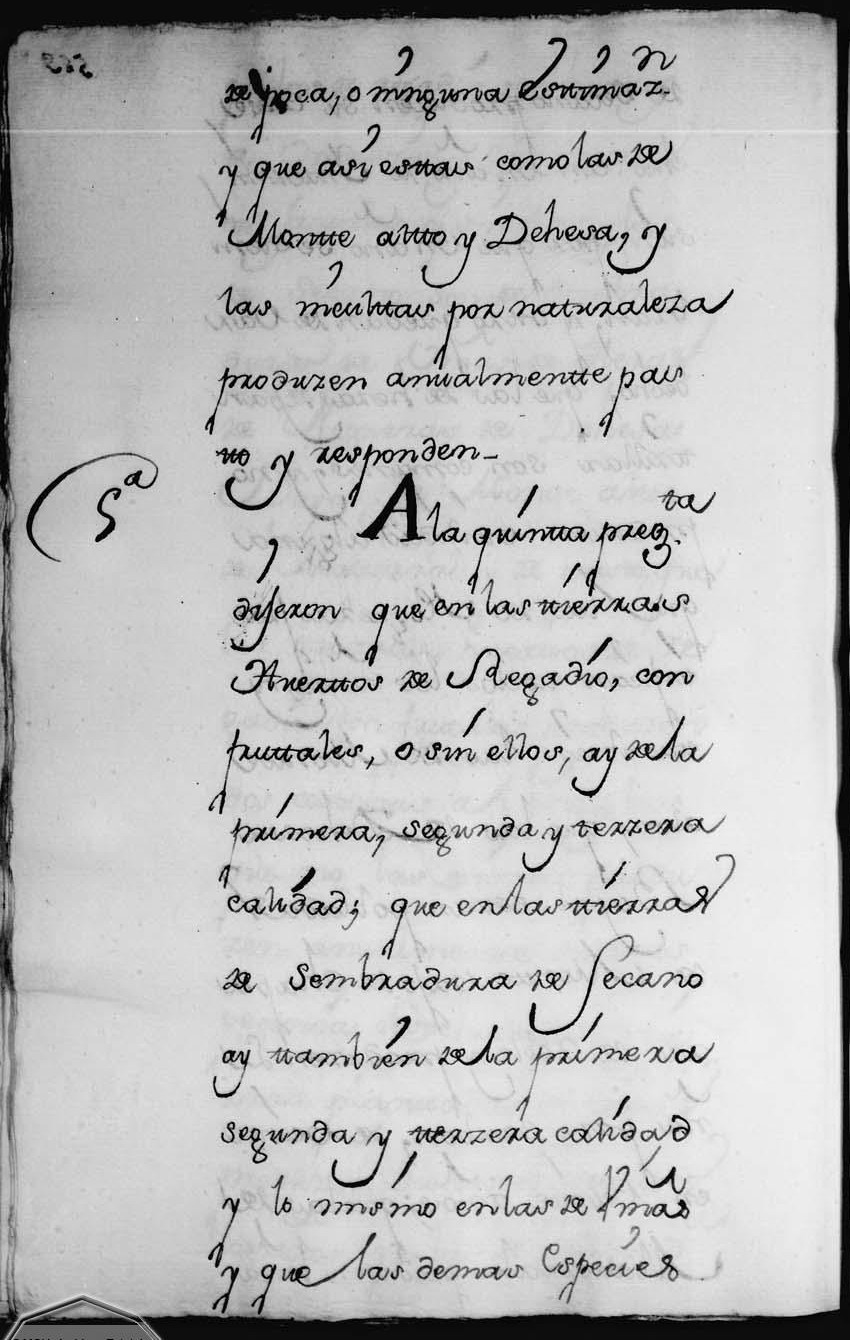 de poca, o ninguna Estimaz.n
y que asi esttas como las de
Montte altto y Dehesa, y
las inculttas por naturaleza
produzen anualmentte pas
tto y responden_
5a
A la quintta preg.ta
dijeron que en las ttierras
Huerttos de Regadío, con
fruttales, o sin ellos, ay de la
primera, segunda y terzera
calidad; que en las ttierras
de Sembradura de Secano
ay tambien de la primera
segunda y tterzera calidad
y lo mismo en las de Viñas
y que las demas Especies